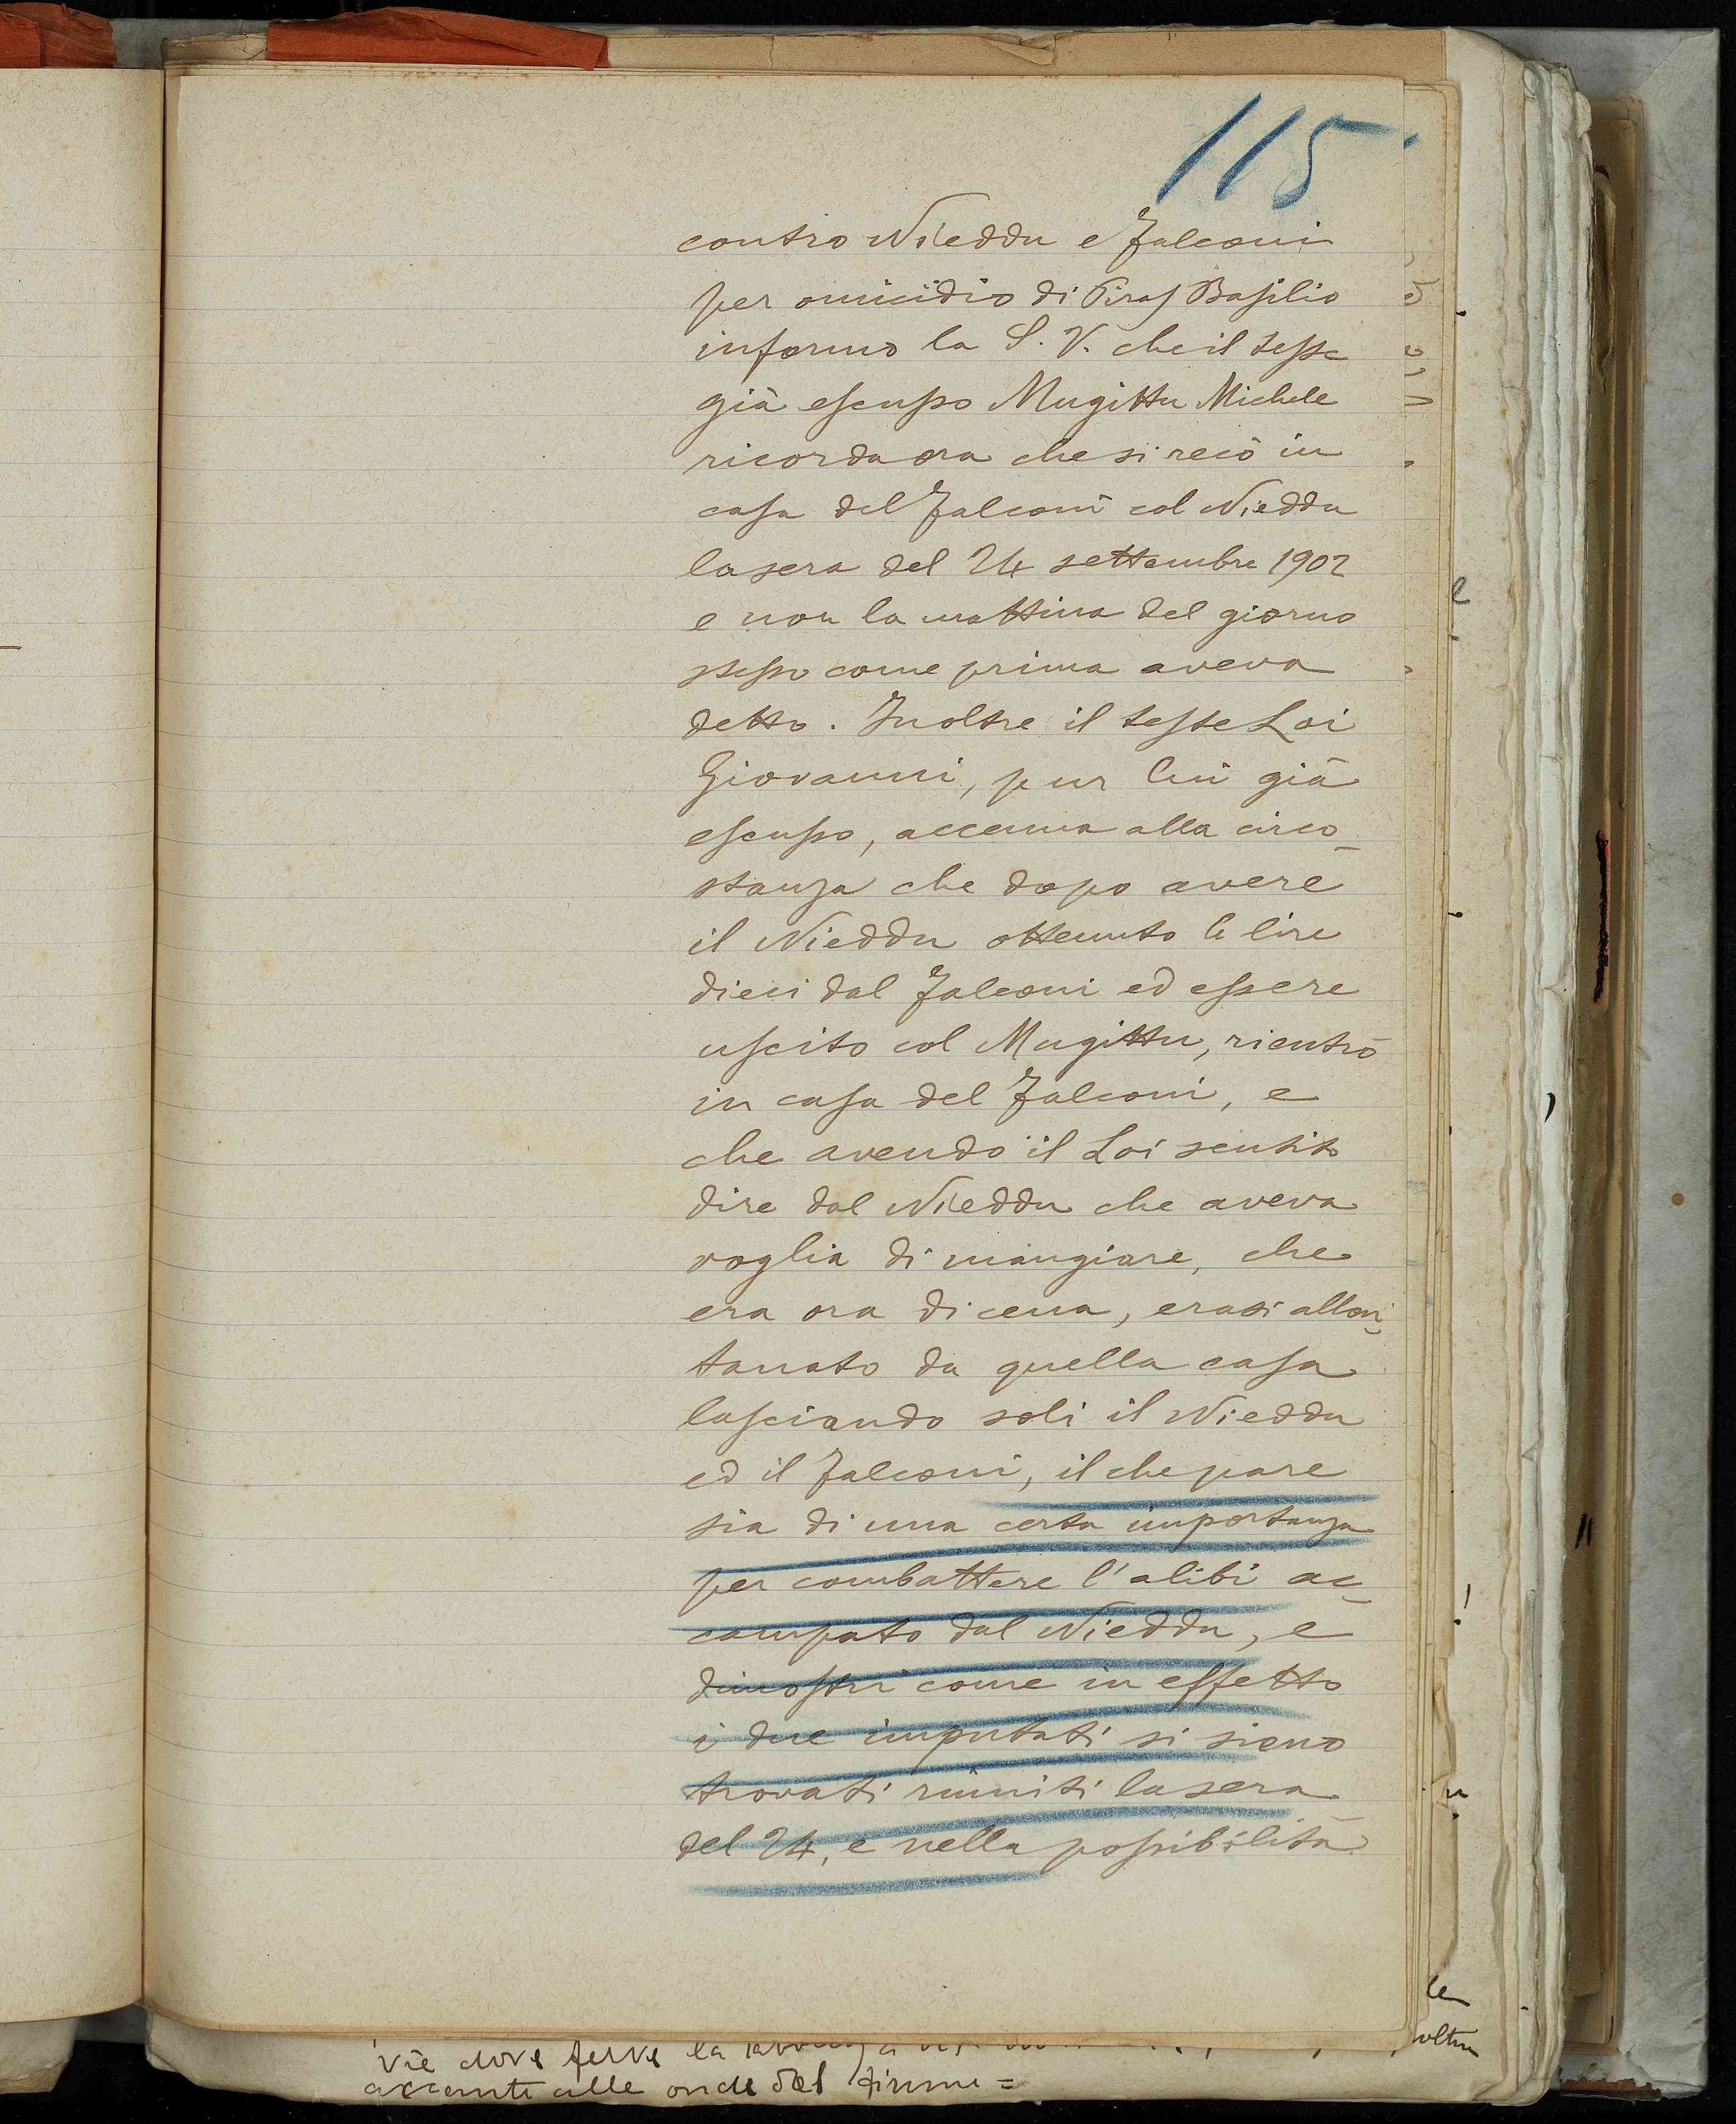 115
contro Nieddu e Falconi
per omicidio di Piras Basilio
informo la S. V. che il teste
già escusso Mugittu Michele
ricorda ora che si recò in
casa del Falconi col Nieddu
la sera del 24 settembre 1902
e non la mattina del giorno
stesso come prima aveva
detto. Inoltre il teste Loi
Giovanni, pur lui già
escusso, accenna alla circo-
stanza che dopo avere
il Nieddu ottenuto le lire
dieci dal Falconi ed essere
uscito col Mugittu, rientrò
in casa del Falconi, e
che avendo il Loi sentito
dire dal Nieddu che aveva
voglia di mangiare, che
era ora di cena, erasi allon-
tanato da quella casa
lasciando soli il Nieddu
ed il Falconi, il che pare
sia di una certa importanza
per combattere l'alibi ac-
campato dal Nieddu, e
dimostri come in effetto
i due imputati si sieno
trovati riuniti la sera
del 24, e nella possibilità
vie dove ferve la
accanto alle onde del fiume =